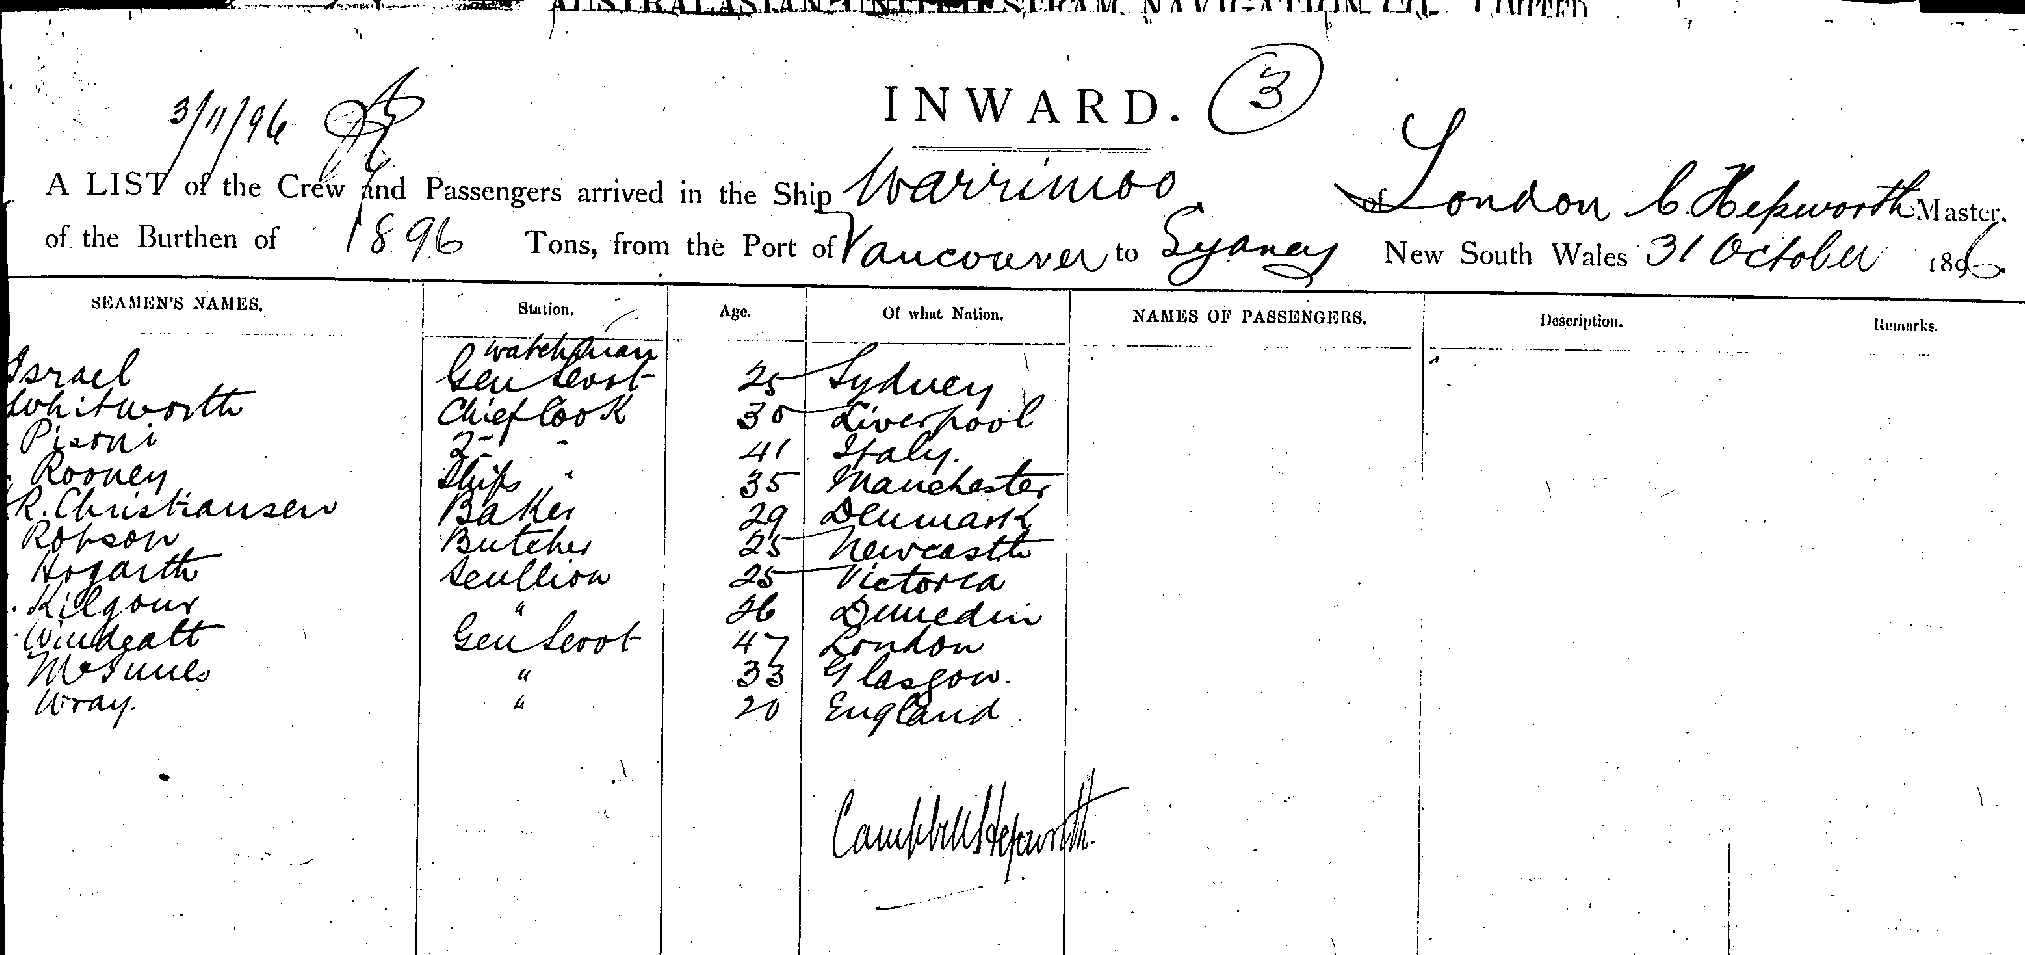 AUSTRALASIAN UNITED STEAM NAVIGATION CO. LIMITED
INWARD. 3
3/11/96
A LIST of the Crew and Passengers arrived in the Ship Warrimoo of London C. Hepworth Master,
of the Burthen of 1896 Tons, from the Port of Vancouver to Sydney New South Wales 31 October 1896
SEAMEN'S NAMES. Station. Age. Of what Nation. NAMES OF PASSENGERS. Description. Remarks.
watchman
Israel Gen Servt 25 Sydney
Whitworth Chief Cook 30 Liverpool
Pisoni 2- " 41 Italy.
Rooney Ships " 35 Manchester
R. Christiansen Baker 29 Denmark
Robson Butcher 25 Newcastle
Hogarth Scullion 25 Victoria
Kilgour " 26 Dunedin
Windeatt Gen Servt 47 London
McInnes " 33 Glasgow.
Wray. " 20 England
Campbell Hepworth.